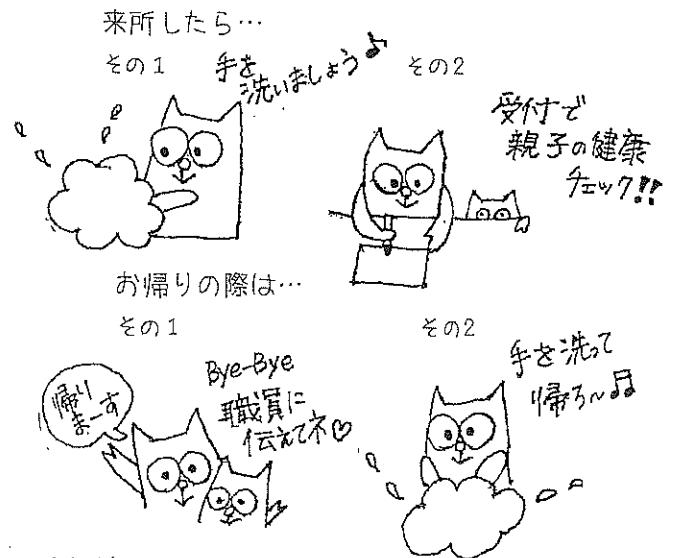 来所したら…
その1
手を
洗いましょう♪
その2
受付で
親子の健康
チェック!!
お帰りの際は…
その1
帰り
まーす
Bye-Bye
職員に
伝えてネ♡
その2
手を洗って
帰ろ〜♫